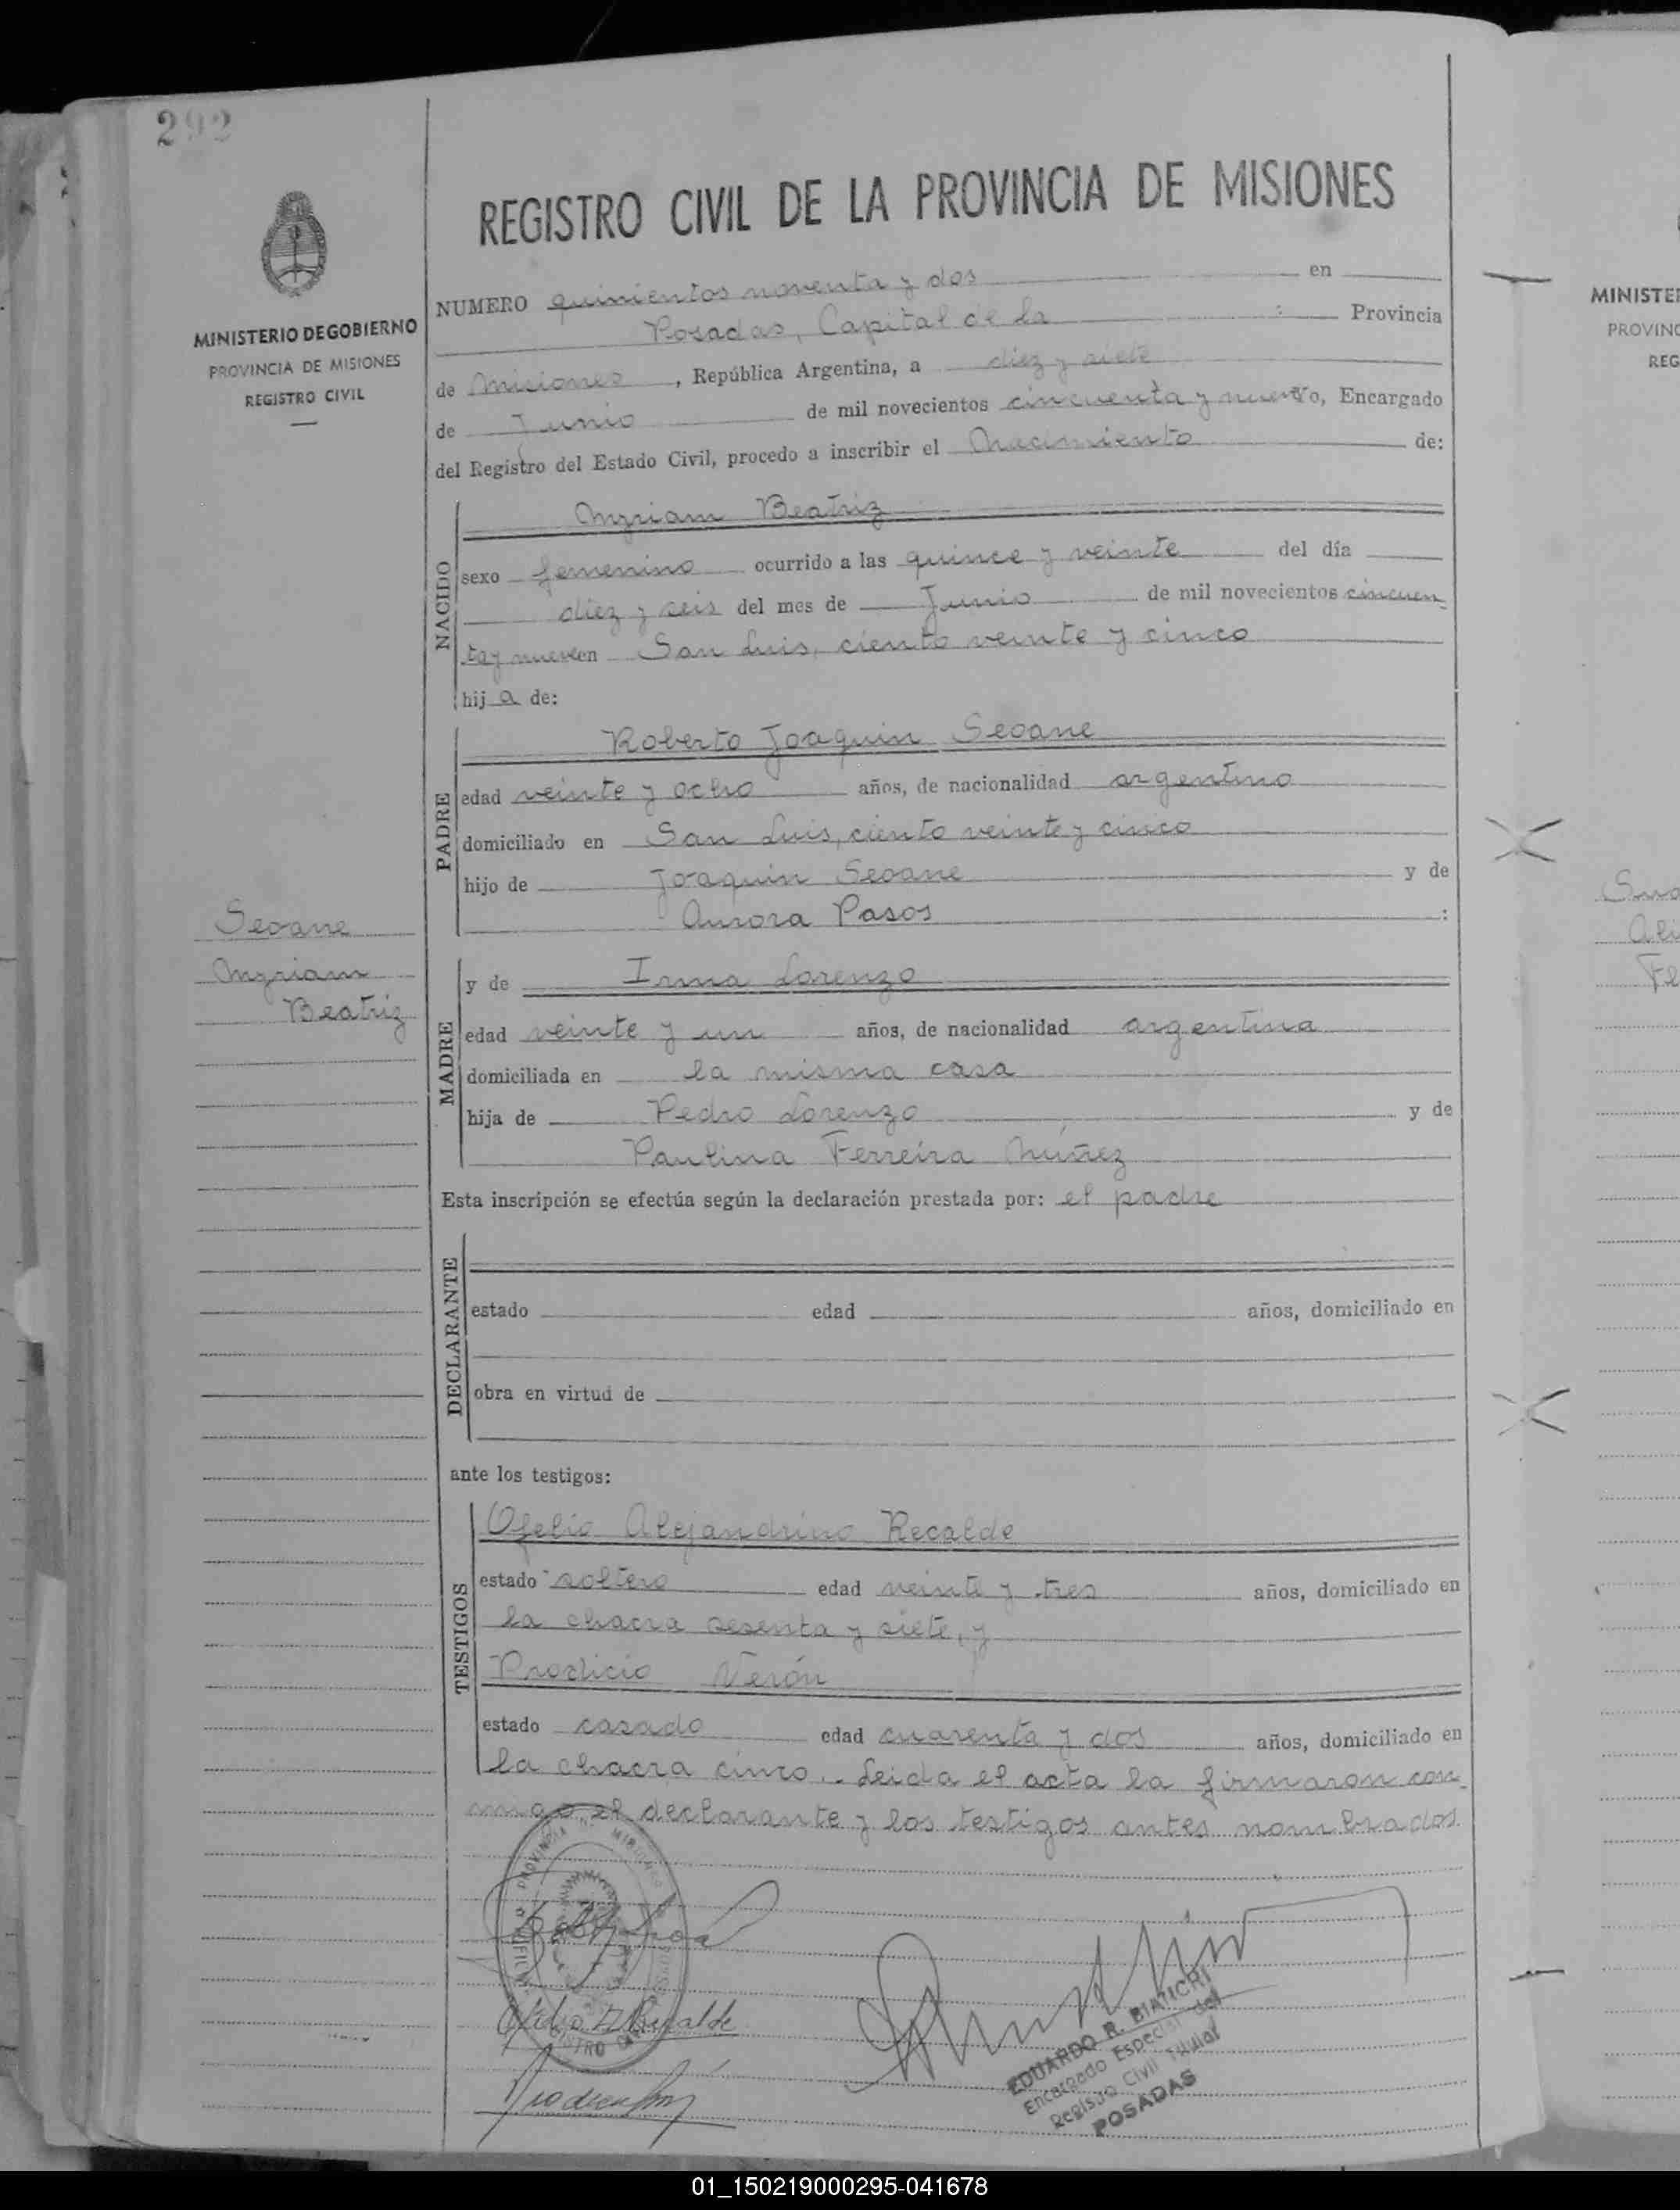 292
REGISTRO CIVIL DE LA PROVINCIA DE MISIONES
MINISTERIO DE GOBIERNO
PROVINCIA DE MISIONES
REGISTRO CIVIL
NUMERO quinientos noventa y dos en
Posadas, Capital de la : Provincia
de Misiones, República Argentina, a diez y siete
de Junio de mil novecientos cincuenta y nueve Yo, Encargado
del Registro del Estado Civil, procedo a inscribir el Nacimiento de:
NACIDO
Myriam Beatriz
sexo femenino ocurrido a las quince y veinte del día
diez y seis del mes de Junio de mil novecientos cincuen
ta y nueve en San Luis, ciento veinte y cinco
hija de:
PADRE
Roberto Joaquin Seoane
edad veinte y ocho años, de nacionalidad argentino
domiciliado en San Luis, ciento veinte y cinco
hijo de Joaquin Seoane y de
Aurora Pasos :
Seoane
Myriam
Beatriz
MADRE
y de Irma Lorenzo
edad veinte y un años, de nacionalidad argentina
domiciliada en la misma casa
hija de Pedro Lorenzo y de
Paulina Ferreira Núñez
Esta inscripción se efectúa según la declaración prestada por: el padre
DECLARANTE
estado edad años, domiciliado en
obra en virtud de
ante los testigos:
TESTIGOS
Ofelio Alejandrino Recalde
estado soltero edad veinte y tres años, domiciliado en
la chacra sesenta y siete, y
Prodicio Verón
estado casado edad cuarenta y dos años, domiciliado en
la chacra cinco.- Leida el acta la firmaron con
migo el declarante y los testigos antes nombrados
EDUARDO R. BIATICHI
Encargado Especial del
Registro Civil Titular
POSADAS
MINISTE
PROVINC
REG
01_150219000295-041678